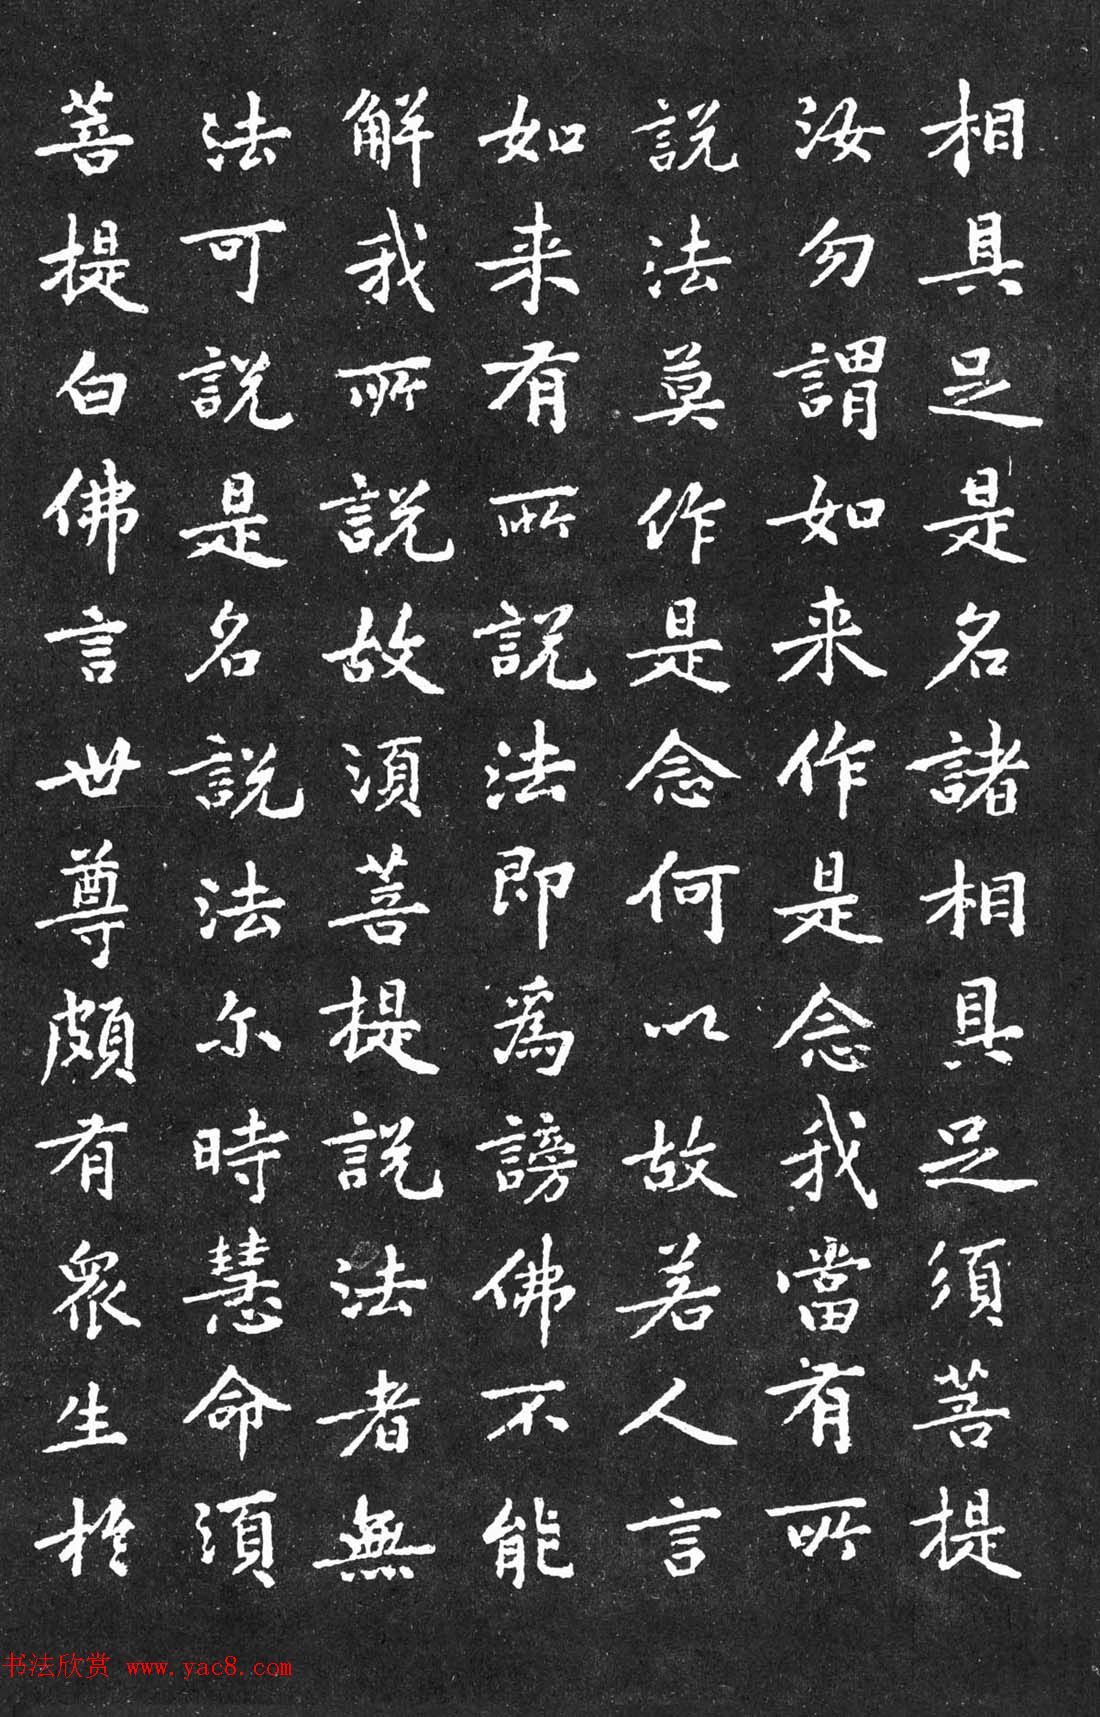 相具足是名諸相具足須菩提
汝勿謂如来作是念我當有所
說法莫作是念何以故若人言
如来有所說法即為謗佛不能
解我所說故須菩提說法者無
法可說是名說法尔時慧命須
菩提白佛言世尊頗有眾生於
书法欣赏 www.yac8.com